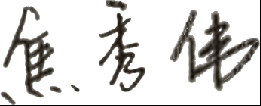 焦秀伟